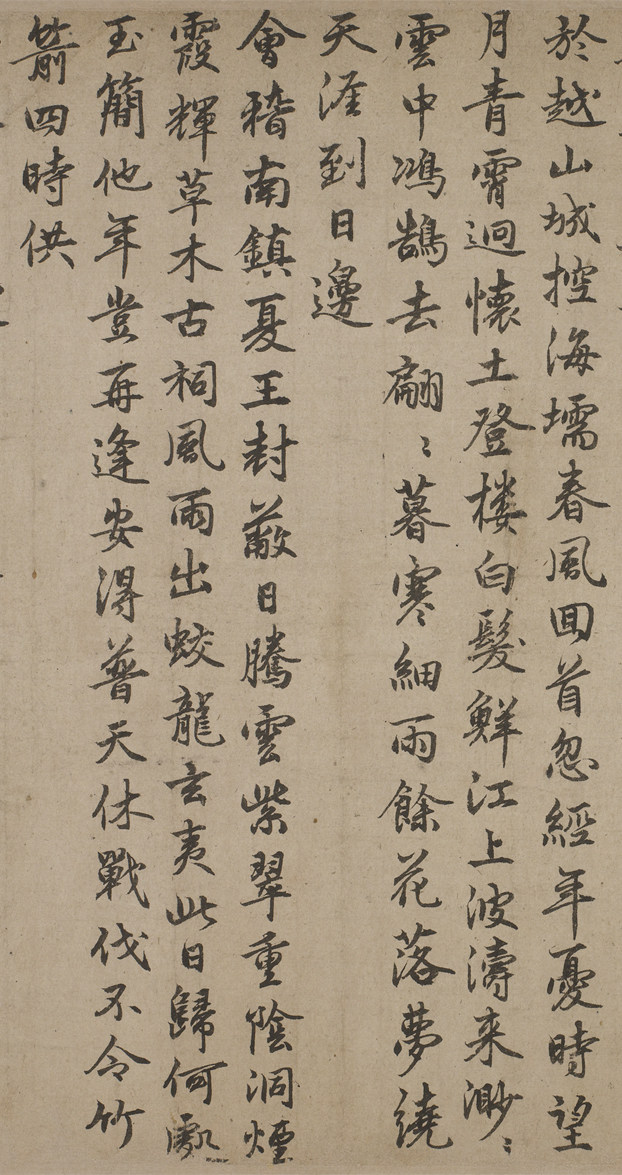 於越山城控海壖春風回首忽經年憂時望
月青霄迥懷土登樓白髮鮮江上波濤来渺〻
雲中鴻鵠去翩〻暮寒細雨餘花落夢繞
天涯到日邊
會稽南鎮夏王封蔽日騰雲紫翠重陰洞煙
霞輝草木古祠風雨出蛟龍玄夷此日歸何處
玉簡他年豈再逢安得普天休戰伐不令竹
箭四時供